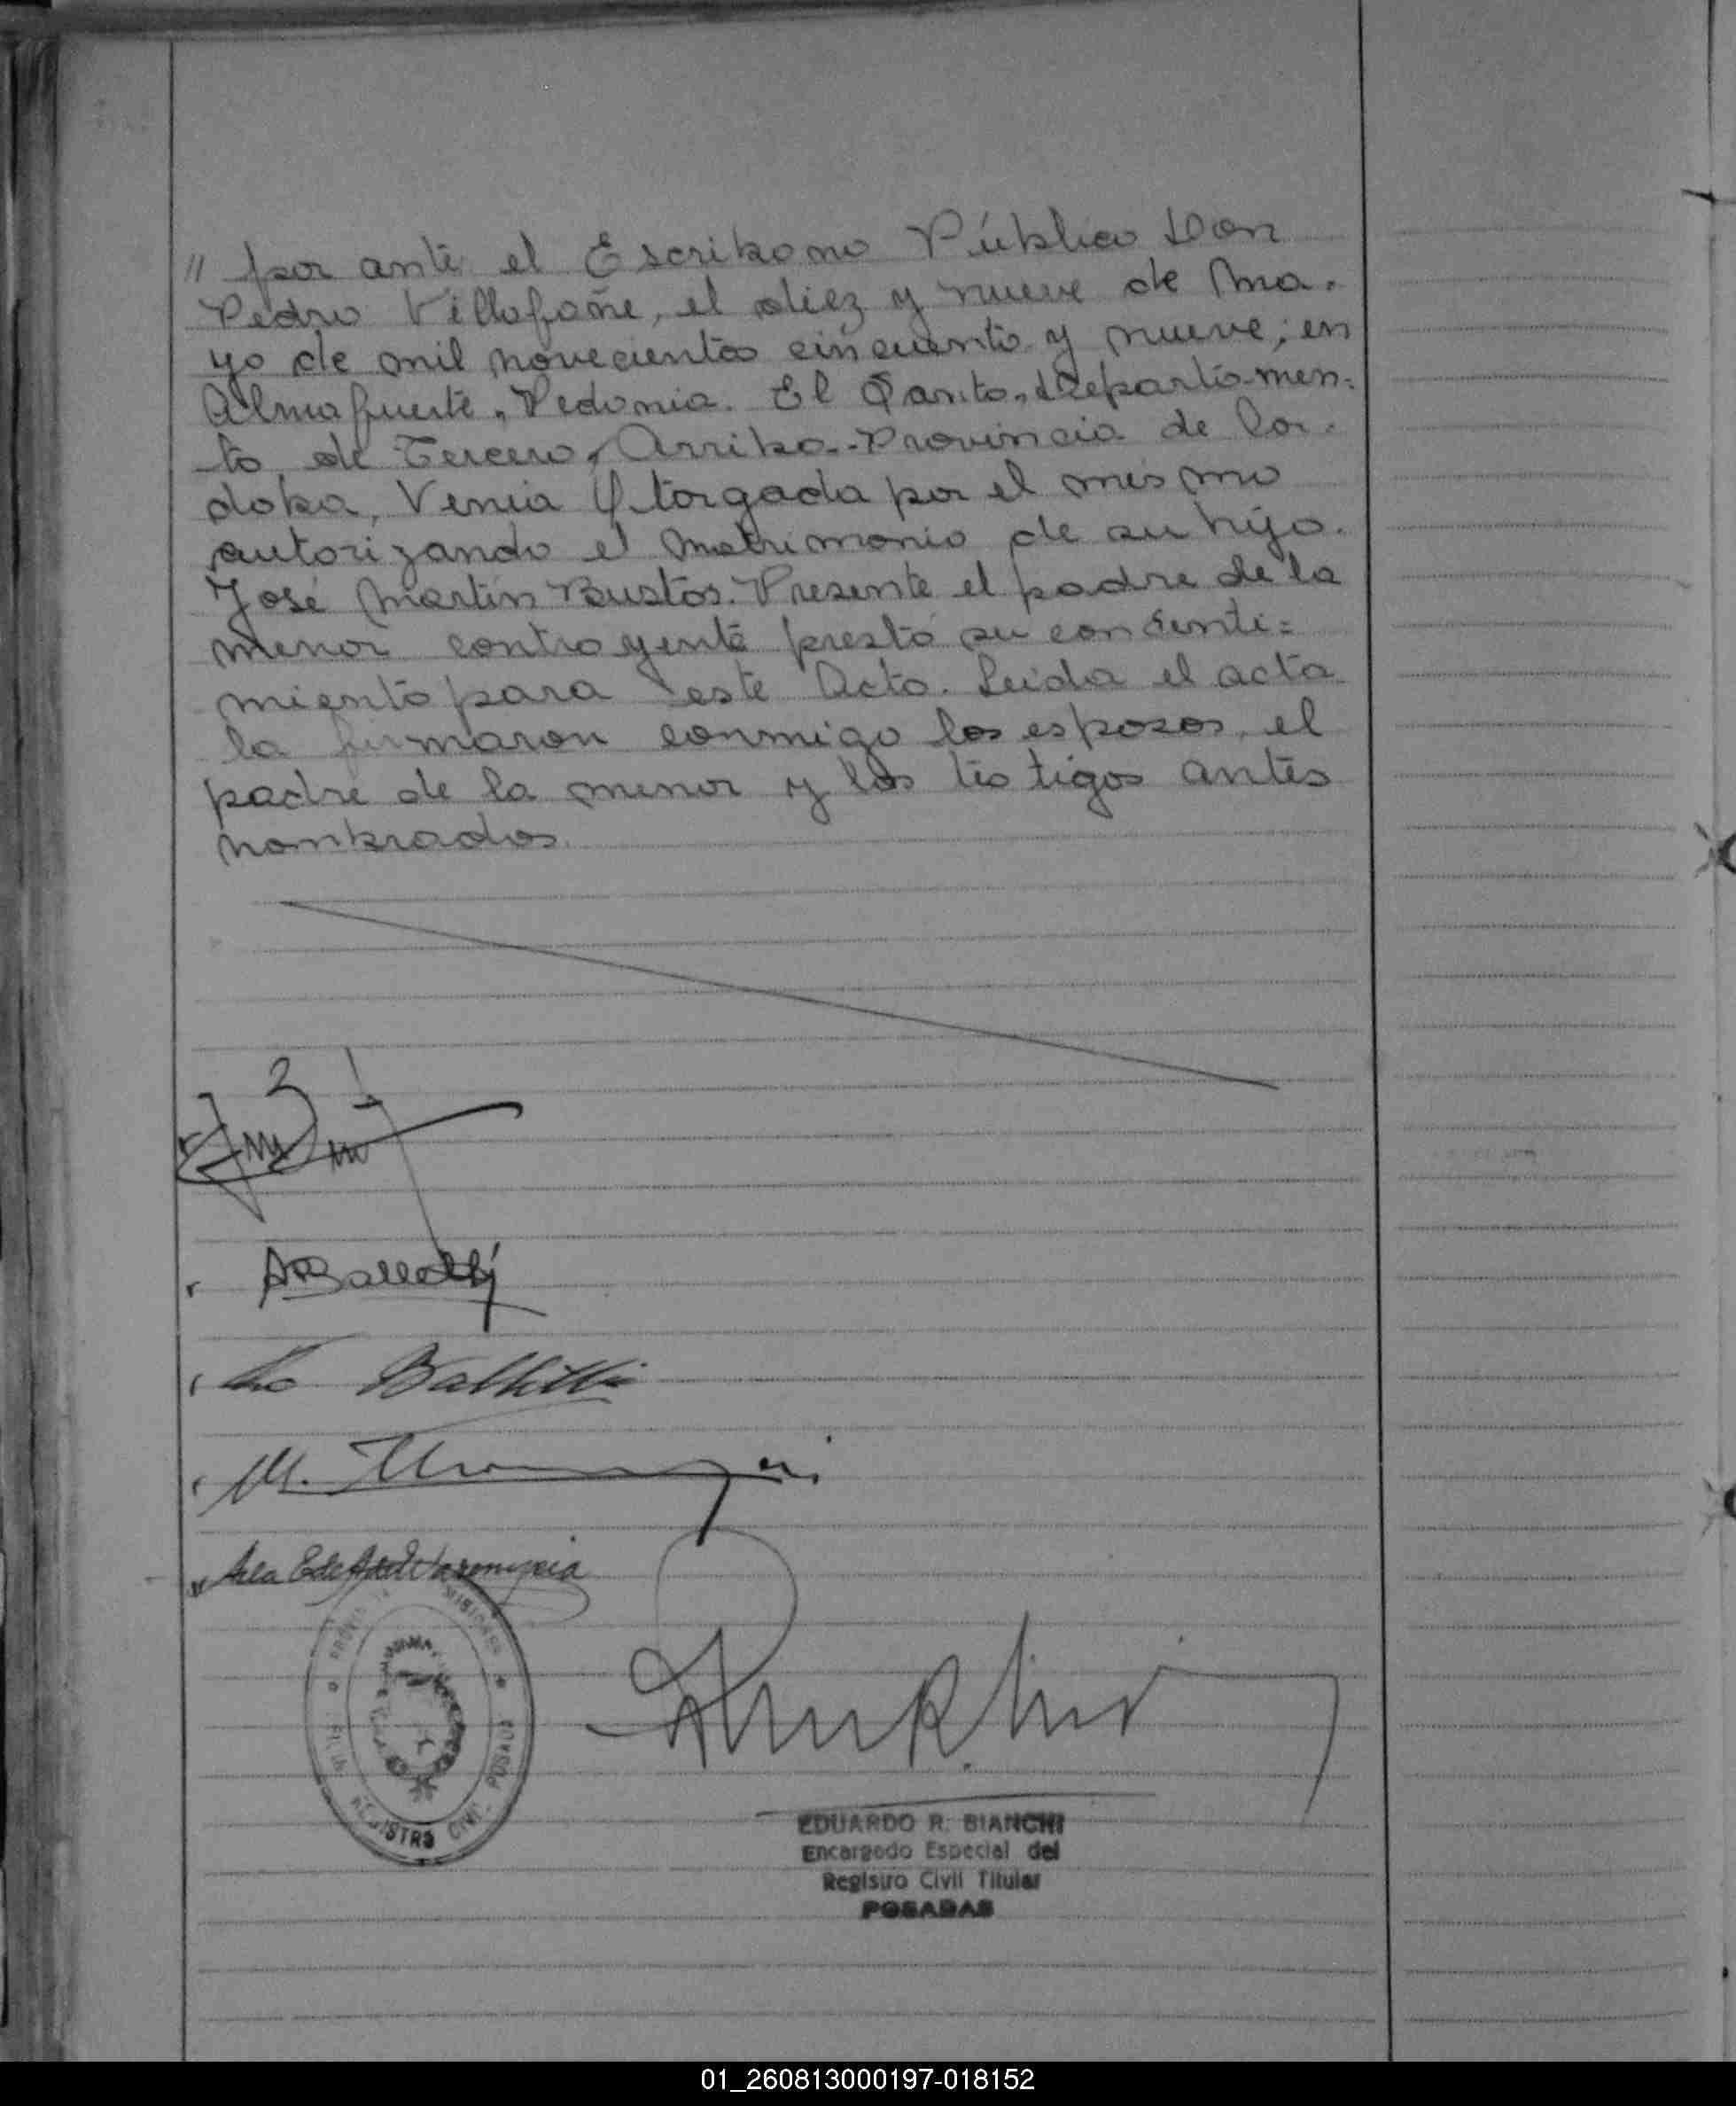 // por ante el Escribano Público Don
Pedro Villafañe, el diez y nueve de Ma-
yo de mil novecientos cincuenta y nueve; en
Almafuerte, Pedania. El Santo, Departa-men-
to de Tercero, Arriba.-Provincia de Cor-
doba, Venia Otorgada por el mismo
autorizando el Matrimonio de su hijo.
José Martín Bustos. Presente el padre de la
menor contrayente prestó su consenti=
miento para este Acto. Leida el acta
la firmaron conmigo los esposos, el
padre de la menor y los testigos antes
nombrados.
ABallatti
M.
REGISTRO CIVIL POSADAS
EDUARDO R. BIANCHI
Encargado Especial del
Registro Civil Titular
POSADAS
01_260813000197-018152